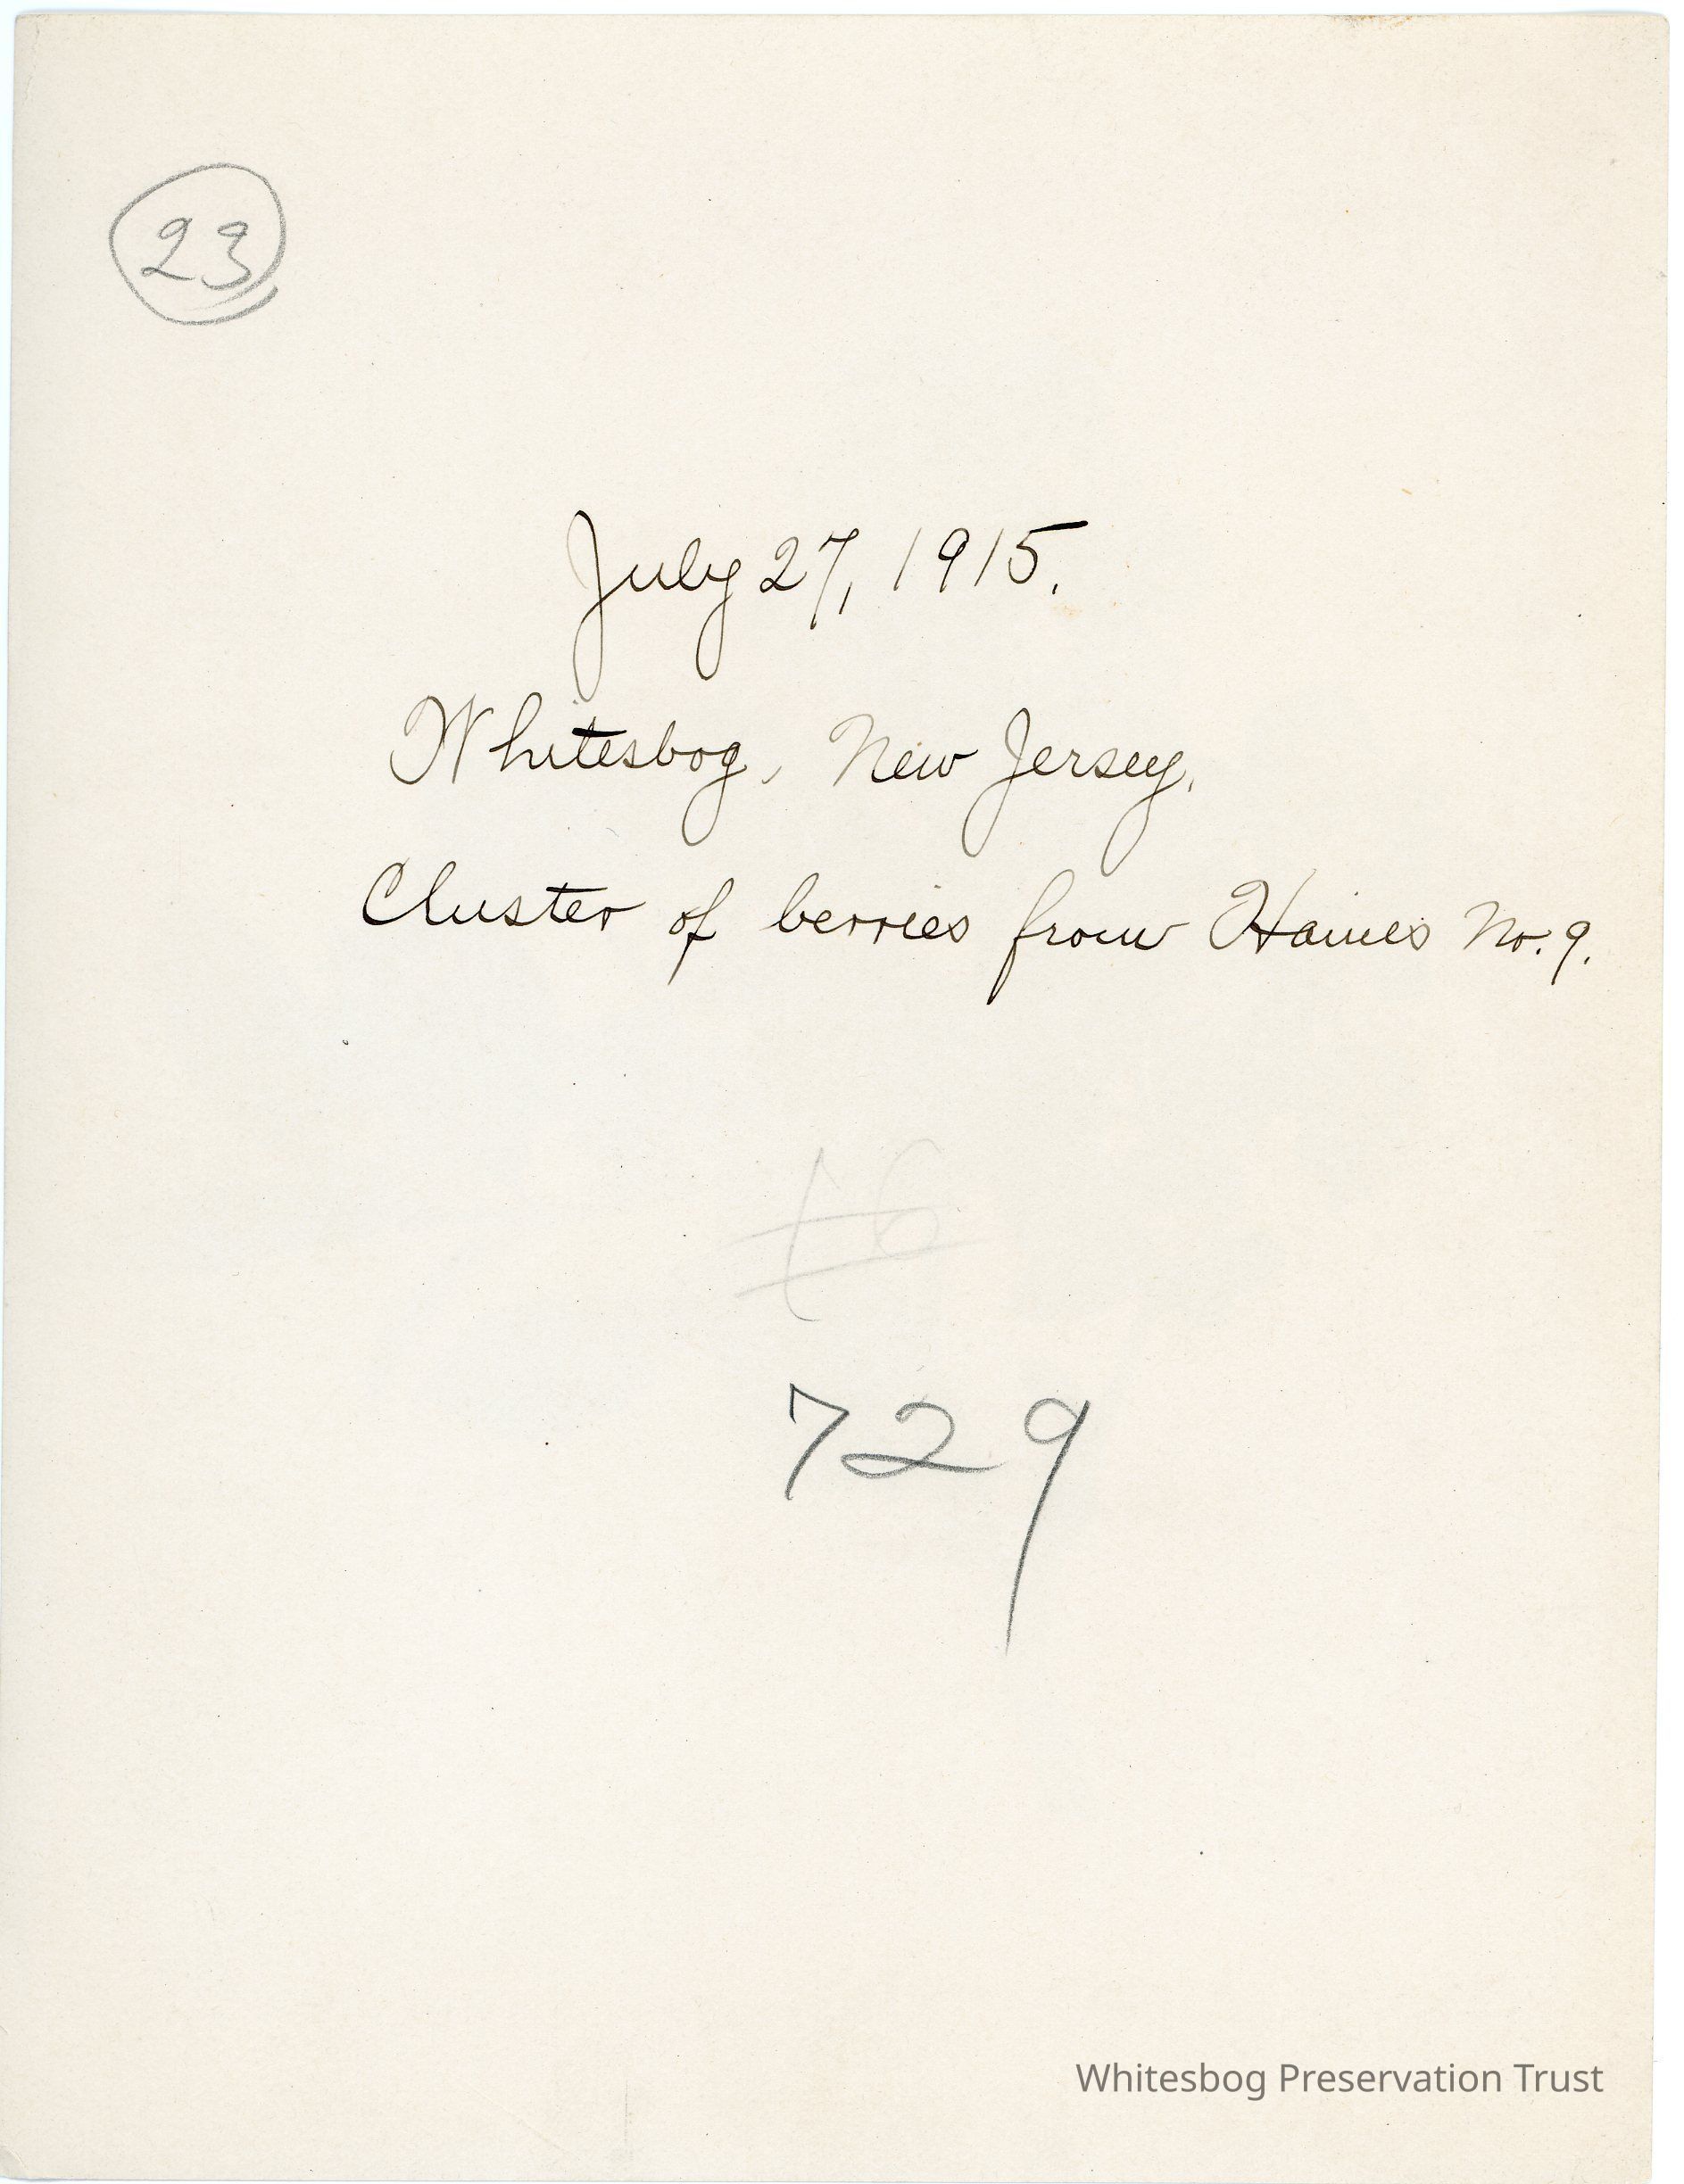 23
July 27, 1915.
Whitesbog, New Jersey.
Cluster of berries from Haines No. 9.
729
Whitesbog Preservation Trust